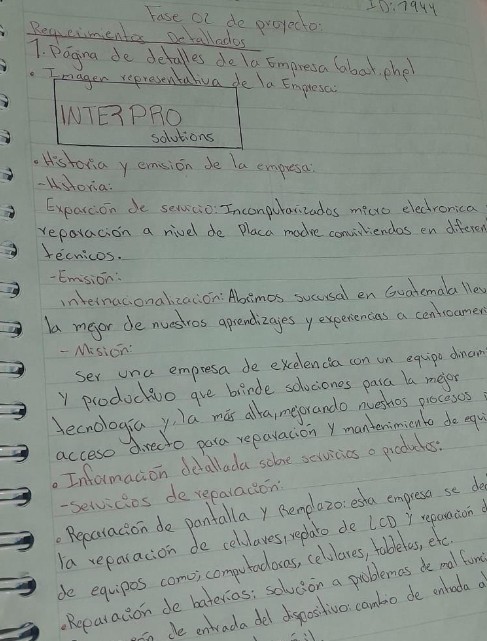 ID: 7944
Fase 02 de proyecto:
Requerimientos Detallados
1. Página de detalles de la Empresa (abaut.php)
• Imagen representativa de la Empresa:
INTERPRO
solutions
• Historia y emisión de la empresa:
- Historia:
Exparción de servicio: Inconputarizados micro electronica
reparación a nivel de Placa madre conviitiendos en diferen
técnicos.
- Emisión:
internacionalización: Abrimos sucursal en Guatemala llev
la mejor de nuestros aprendizajes y experiencias a centroameri
- Misión:
Ser una empresa de excelencia con un equipo dinam
y productivo que brinde soluciones para la mejor
tecnología y la más alta, mejorando nuestros procesos
acceso directo para reparación y mantenimiento de equi
• Información detallada sobre servicios o productos:
- Servicios de reparación:
• Reparación de pantalla y Remplazo: esta empresa se de
ta reparación de celulares, repato de LCD y reparación d
de equipos como; computadoras, celulares, tabletas, etc.
• Reparación de baterías: solución a problemas de mal func
de entrada del dispositivo: cambio de entrada al